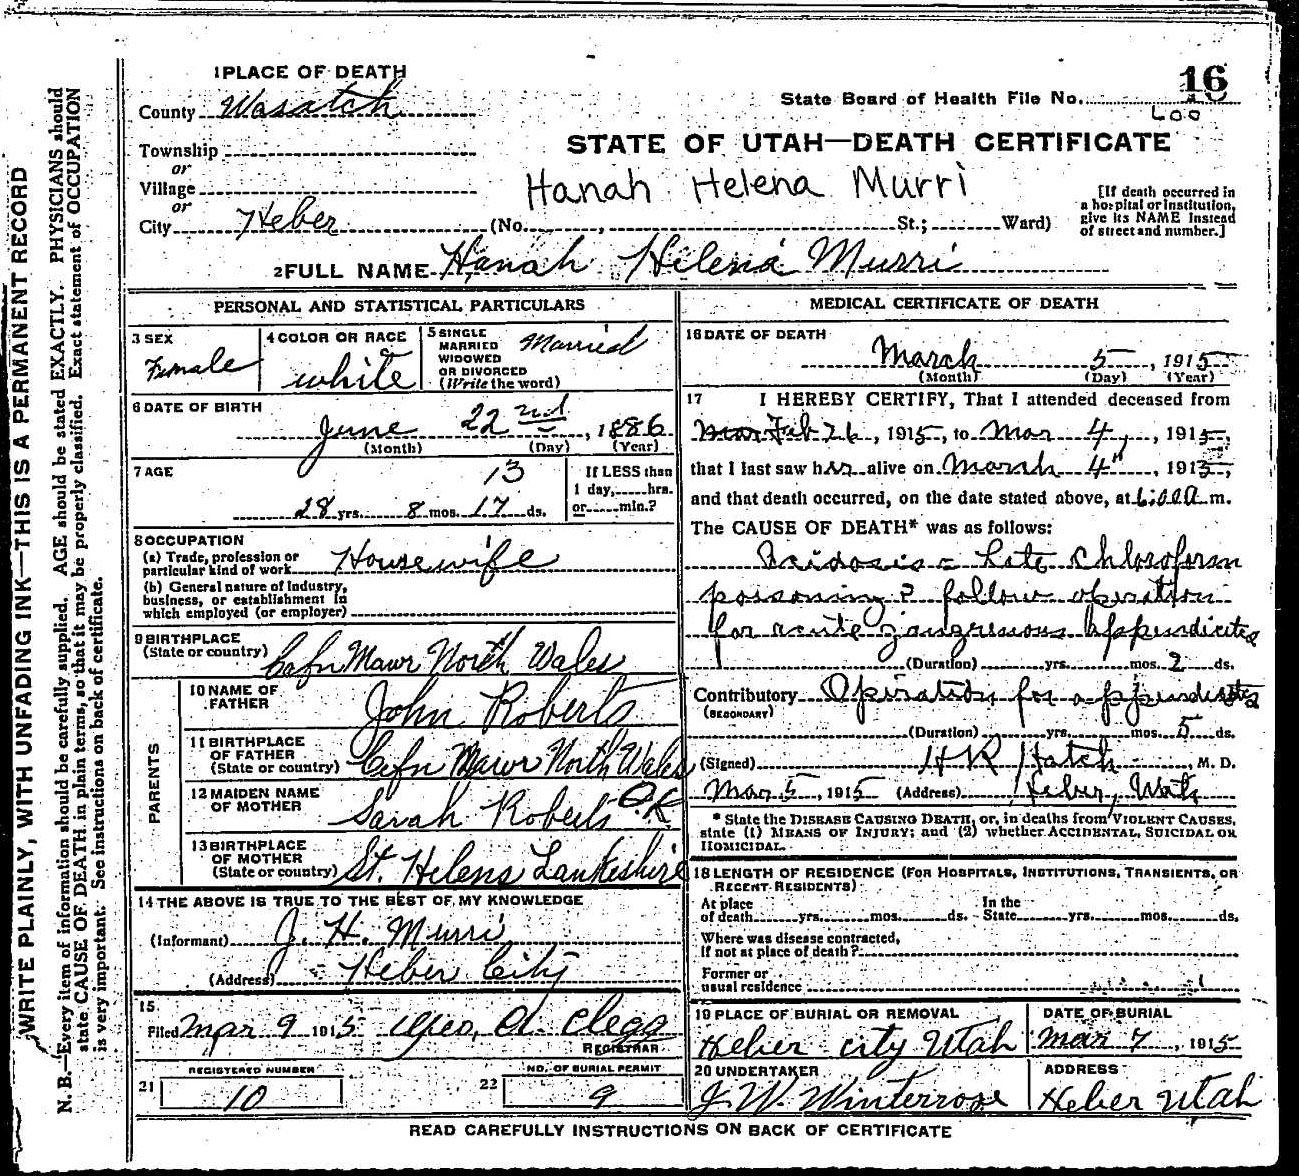 1 PLACE OF DEATH
County Wasatch
Township
or
Village
or
City Heber (No. , St.; Ward)
16
State Board of Health File No.
600
STATE OF UTAH—DEATH CERTIFICATE
Hanah Helena Murri
[If death occurred in
a hospital or institution,
give its NAME instead
of street and number.]
2 FULL NAME Hanah Helena Murri
WRITE PLAINLY, WITH UNFADING INK—THIS IS A PERMANENT RECORD
N. B.—Every item of information should be carefully supplied. AGE should be stated EXACTLY. PHYSICIANS should
state CAUSE OF DEATH in plain terms, so that it may be properly classified. Exact statement of OCCUPATION
is very important. See instructions on back of certificate.
PERSONAL AND STATISTICAL PARTICULARS
3 SEX
Female
4 COLOR OR RACE
white
5 SINGLE
MARRIED
WIDOWED
OR DIVORCED
(Write the word)
Married
6 DATE OF BIRTH
June 22nd, 1886
(Month) (Day) (Year)
7 AGE
13
28 yrs. 8 mos. 17 ds.
If LESS than
1 day, hrs.
or min.?
8 OCCUPATION
(a) Trade, profession or
particular kind of work Housewife
(b) General nature of industry,
business, or establishment in
which employed (or employer)
9 BIRTHPLACE
(State or country) Cefn Mawr North Wales
PARENTS
10 NAME OF
FATHER John Roberts
11 BIRTHPLACE
OF FATHER
(State or country) Cefn Mawr North Wales
12 MAIDEN NAME
OF MOTHER Sarah Roberts O.K.
13 BIRTHPLACE
OF MOTHER
(State or country) St. Helens Lankeshire
14 THE ABOVE IS TRUE TO THE BEST OF MY KNOWLEDGE
(Informant) J. H. Murri
(Address) Heber City
15
Filed Mar 9 1915 Geo. A. Clegg
REGISTRAR
21 REGISTERED NUMBER
10
22 NO. OF BURIAL PERMIT
9
MEDICAL CERTIFICATE OF DEATH
16 DATE OF DEATH
March 5, 1915
(Month) (Day) (Year)
17 I HEREBY CERTIFY, That I attended deceased from
Mar Feb 26, 1915, to Mar 4, 1915,
that I last saw her alive on March 4", 1915,
and that death occurred, on the date stated above, at 6:00 A m.
The CAUSE OF DEATH* was as follows:
Acidosis = Late Chloroform
poisoning? follow operation
for acute gangrenous Appendicitis
(Duration) yrs. mos. 2 ds.
Contributory Operation for appendicitis
(SECONDARY)
(Duration) yrs. mos. 5 ds.
(Signed) H R Hatch, M. D.
Mar 5, 1915 (Address) Heber, Utah
* State the DISEASE CAUSING DEATH, or, in deaths from VIOLENT CAUSES,
state (1) MEANS OF INJURY; and (2) whether ACCIDENTAL, SUICIDAL OR
HOMICIDAL.
18 LENGTH OF RESIDENCE (FOR HOSPITALS, INSTITUTIONS, TRANSIENTS, OR
RECENT RESIDENTS)
At place
of death yrs. mos. ds.
In the
State yrs. mos. ds.
Where was disease contracted,
If not at place of death?
Former or
usual residence
19 PLACE OF BURIAL OR REMOVAL
Heber City Utah
DATE OF BURIAL
Mar 7, 1915
20 UNDERTAKER
J. W. Winterrose
ADDRESS
Heber Utah
READ CAREFULLY INSTRUCTIONS ON BACK OF CERTIFICATE